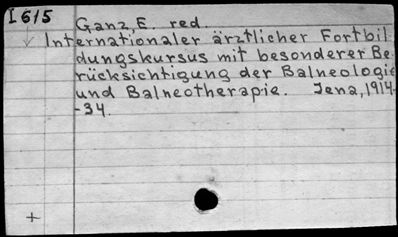 I 615
Ganz, E. red.
Internationaler ärztlicher Fortbil
dungskursus mit besonderer Be
rücksichtigung der Balneologie
und Balneotherapie. Jena, 1914-
-34.
+